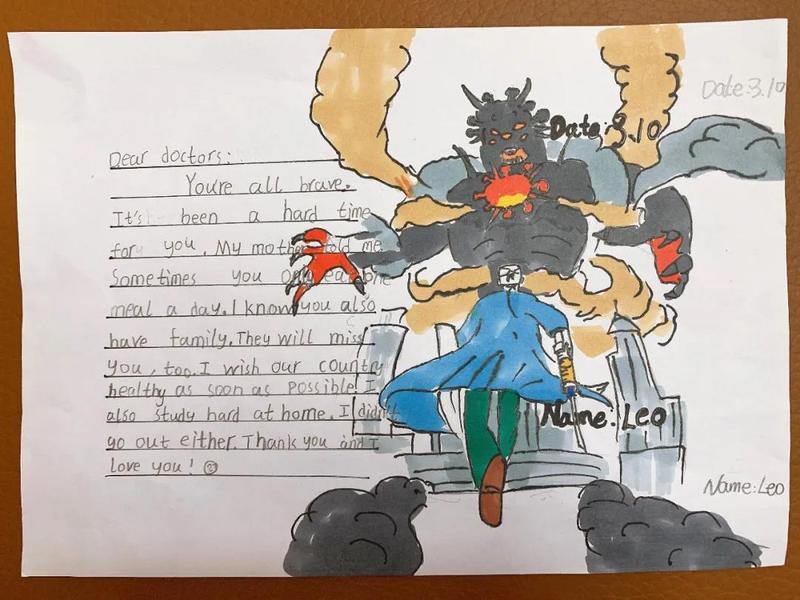 Date:3.10
Dear doctors:
Date:3.10
You're all brave.
It's been a hard time
for you. My mother told me
Sometimes you only eat one
meal a day. I know you also
have family. They will miss
you, too. I wish our country
healthy as soon as possible! I
also study hard at home. I didn't
go out either. Thank you and I
love you!
Name:Leo
Name:Leo